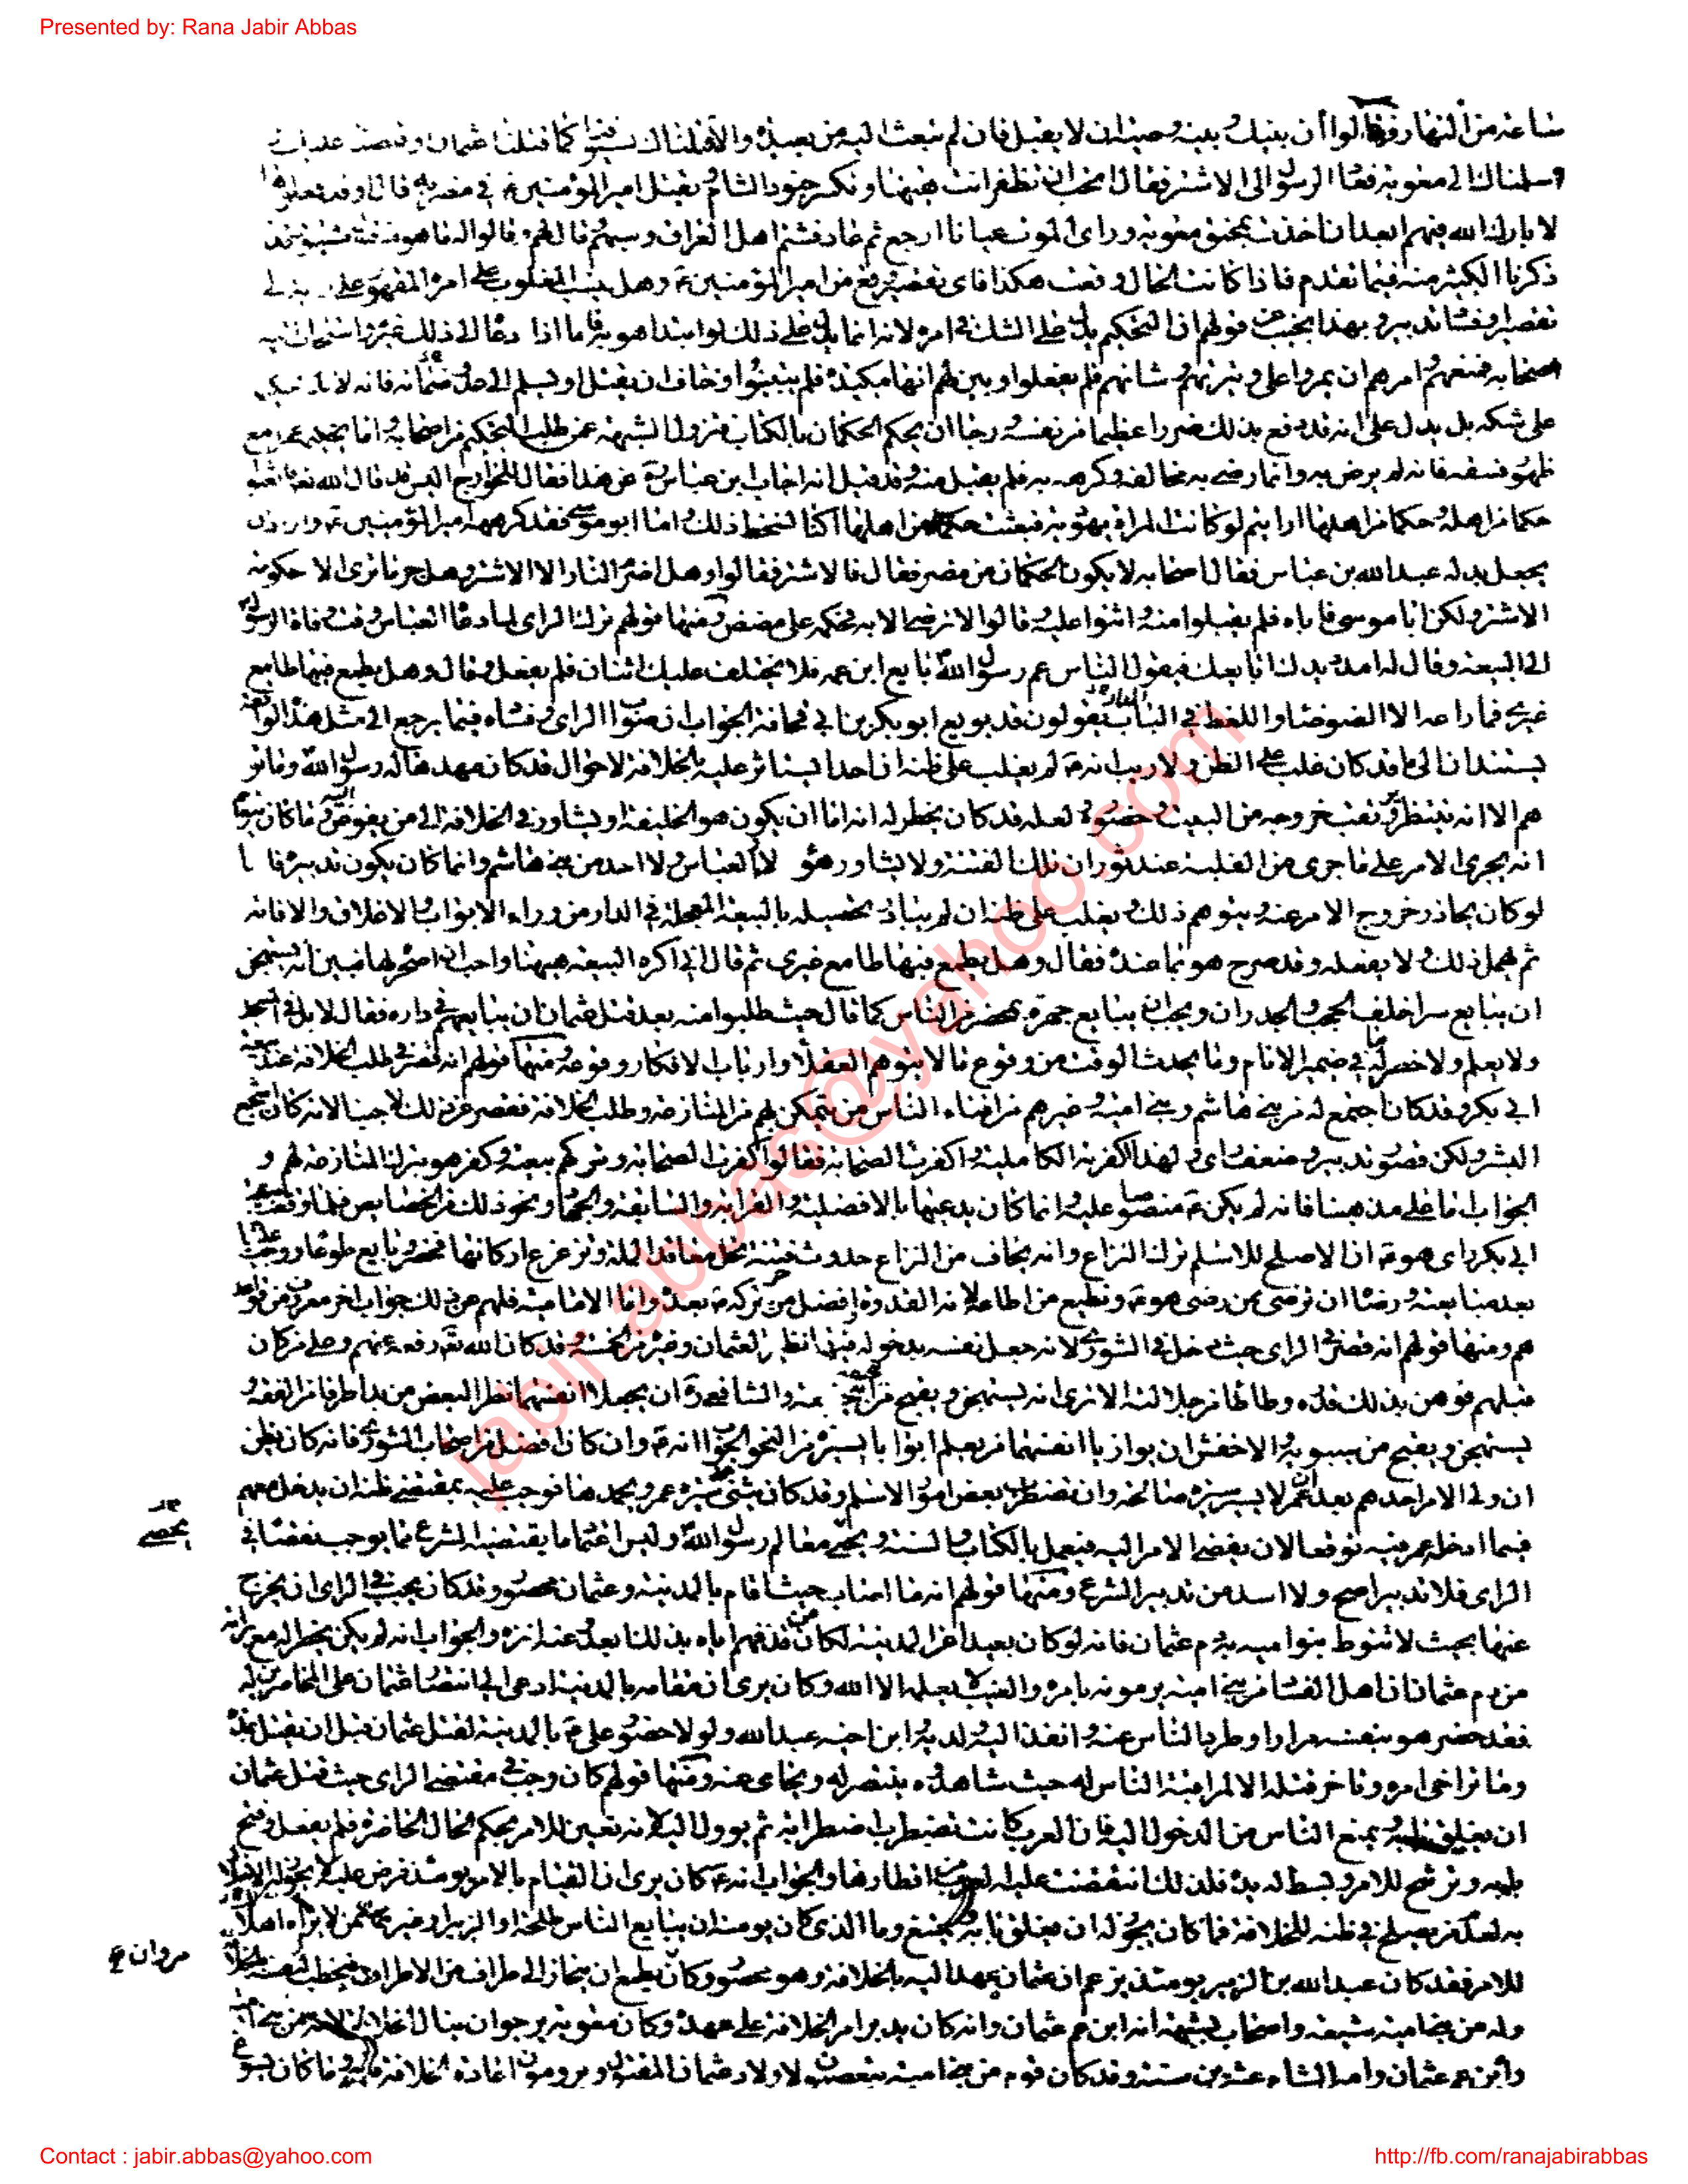 Presented by: Rana Jabir Abbas
ساعة من النهار فقالوا أن بينك وبينه وحينئذ لا يقبل فان لم تبعث اليه من يعيده والا قتلناك بسيوفنا كما قتلنا عثمان
وسلمناك الى معوية فقال الرسول الى الاشتر فقال اتحب ان تظفر انت هيهنا وتكسر جنود الشام ويقتل امير المؤمنين ع في مضربه قال او قد فعلوها
لا بارك الله فيهم ابعد ان اخذت بمخنق معوية وراى الموت عيانا ارجع ثم عاد فشتم اهل العراق وسبهم قال لهم وقالوا له ما هو
ذكرنا الكثير منه فيما تقدم فاذا كانت الحال وقعت هكذا فاى تقصير وقع من امير المؤمنين ع وهل ينسب المغلوب على امره المقهور على
تقصير او فساد تدبير وبهذا يجيب عن قولهم ان التحكيم يدل على الشك في امره لانه انما يدل على ذلك لو ابتدا هو به فاما اذا دعا الى ذلك غيره واستجاب اليه
اصحابه فمنعهم وامرهم ان يمروا على وتيرتهم وشانهم فلم يفعلوا وبين لهم انها مكيدة فلم يتبينوا وخاف ان يقتل او يسلم الى عدوه فانه لا يدل تحكيمه
على شكه بل يدل على انه قد دفع بذلك ضررا عظيما من نفسه ورجا ان يحكم الحكمان بالكتاب فتزول الشبهة عمن طلب التحكيم من اصحابه واما تحكيمه عمرا مع
ظهور فسقه فانه لم يرض به وانما رضى به مخالفه وكرهه هو فلم يقبل منه وقد قيل انه اجاب ابن عباس ره عن هذا فقال للخوارج اليس قد قال الله تعالى فابعثوا
حكما من اهله وحكما من اهلها ارايتم لو كانت المراة يهودية فبعثت حكما من اهلها اكنا نسخط ذلك واما ابو موسى فقد كرهه امير المؤمنين ع واراد ان
يجعل بدله عبد الله بن عباس فقال اصحابه لا يكون الحكمان من مضر فقال فالاشتر فقالوا وهل اضرم النار الا الاشتر وهل جر ما ترى الا حكومة
الاشتر ولكن ابا موسى فاباه فلم يقبلوا منه واثنوا عليه وقالوا لا نرضى الا به فحكمه على مضض ومنها قولهم ترك الراى لما دعاه العباس وقت وفاة الرسول
الى البيعة وقال له امدد يدك ابايعك فيقول الناس عم رسول الله بايع ابن عمه فلا يختلف عليك اثنان فلم يفعل وقال وهل يطمع فيها طامع
غيرى فما راعه الا الضوضاء واللغط في الباب يقولون قد بويع ابو بكر بن ابي قحافة الجواب ان صواب الراى وفساده فيما يرجع الى مثل هذه الواقعة
يستندان الى ما قد كان غلب على الظن ولا ريب انه ع لم يغلب على ظنه ان احدا يستاثر عليه بالخلافة لاحوال قد كان مهدها له رسول الله وما توهم
هم الا انه ينتظر ويرتقب خروجه من البيت وحضوره ولعله قد كان يخطر له انه اما ان يكون هو الخليفة او يشاور في الخلافة الى من يفوض وما كان يتوهم
انه يجرى الامر على ما جرى من الغلبة عند ثوران تلك الفتنة ولا يشاور هو ولا العباس ولا احد من بنى هاشم وانما كان يكون تدبيره فاسدا
لو كان يحاذر خروج الامر عنه ويتوهم ذلك ويغلب على ظنه ان لم يبادر تحصيله بالبيعة المعجلة في الدار من وراء الابواب والاغلاق والا فاته
ثم يهمل ذلك ولا يفعله وقد صرح هو بما عنده فقال وهل يطمع فيها طامع غيرى ثم قال انى اكره البيعة هيهنا واحب ان اصحر لها فبين انه يستهجن
ان يبايع سرا خلف الحجب والجدران ويحب ان يبايع جهرة بمحضر من الناس كما قال حيث طلبوا منه بعد قتل عثمان ان يبايعهم في داره فقال لا بل في المسجد
ولا يعلم ولا خطر له ما في ضمير الايام وما يحدث الوقت من وقوع ما لا يتوهم العقلاء وارباب الافكار وقوعه ومنها قولهم انه قصر في طلب الخلافة عند بيعة
ابي بكر وقد كان اجتمع له من بنى هاشم وبنى امية وغيرهم من افناء الناس من يتمكن بهم من المنازعة وطلب الخلافة فقصر عن ذلك لا جبنا لانه كان اشجع
البشر ولكن قصور تدبير وضعف راى ولهذا اكفرته الكاملية واكفرت الصحابة فقالوا كفرت الصحابة بتركهم بيعته وكفر هو بترك المنازعة لهم و
الجواب اما على مذهبنا فانه لم يكن ع منصوصا عليه وانما كان يدعيها بالافضلية والقرابة والسابقة والجهاد ونحو ذلك من الخصايص فلما وقعت بيعة
ابي بكر راى هو ع ان الاصلح للاسلام ترك النزاع وانه يخاف من النزاع حدوث فتنة تحل معاقد الملة وتزعزع اركانها فحضر وبايع طوعا ووجب علينا
بعد مبايعته ورضاه ان نرضى بمن رضى هو ع ونطيع من اطاعه لانه القدوة وافضل من تركه ص بعده واما الامامية فلهم عن ذلك جواب اخر معروف من قواعد
هم ومنها قولهم انه قصر في الراى حيث دخل في الشورى لانه جعل نفسه بدخوله فيها نظيرا لعثمان وغيره من الخمسة وقد كان الله تعالى رفعه عنهم وعلى من كان
قبلهم فوهن بذلك قدره وطاطا من جلالته الا ترى انه يستهجن ويقبح من ابي حنيفة والشافعي ره ان يجعلا انفسهما نظراء لبعض من بدا طرفا من الفقه و
يستهجن ويقبح من سيبويه والاخفش ان يوازيا انفسهما بمن يعلم ابوابا يسيرة من النحو الجواب انه ع وان كان افضل من اصحاب الشورى فانه كان يظن
ان ولى الامر احدهم بعد عمر لا يسير سيرة صالحة وان تضطرب بعض امور الاسلام وقد كان يثنى على سيرة عمر ويحمدها فوجب عليه بمقتضى ظنه ان يدخل معهم
فيما ادخله عمر فيه توقعا لان يفضى الامر اليه فيعمل بالكتاب والسنة ويحيى معالم رسول الله وليس اعتماد ما يقتضيه الشرع مما يوجب نقصا في
الراى فلا تدبير اصح ولا اسد من تدبير الشرع ومنها قولهم انه ما اصاب حيث اقام بالمدينة وعثمان محصور وقد كان يجب في الراى ان يخرج
عنها بحيث لا تنوط بنو امية به دم عثمان فانه لو كان بعيدا عن المدينة لكان من قذفهم اياه بذلك ابعد وعنه انزه والجواب انه لم يكن يخطر له مع براءته
من دم عثمان ان اهل الفساد من بنى امية يرمونه بامره والغيب لا يعلمه الا الله وكان يرى ان مقامه بالمدينة ادعى الى انتصار عثمان على المحاصرين له
فقد حضر هو بنفسه مرارا وطرد الناس عنه وانفذ اليه ولديه وابن اخيه عبد الله ولولا حضور علي ع بالمدينة لقتل عثمان قبل ان يقتل بمدة
وما تراخى امره وتاخر قتله الا لمراقبة الناس له حيث شاهدوه ينتصر له ويحامى عنه ومنها قولهم كان يجب في مقتضى الراى حيث قتل عثمان
ان يغلق بابه ويمنع الناس من الدخول اليه فان العرب كانت تضطرب اضطرابة ثم تؤول اليه لانه تعين للامر بحكم الحال الحاضرة فلم يفعل وفتح
بابه وترشح للامر وبسط له يده فلذلك انتقضت عليه العرب من اقطارها والجواب انه ع كان يرى ان القيام بالامر يومئذ فرض عليه لا يجوز له الاخلال
به لعدم من يصلح في ظنه للخلافة فما كان يجوز له ان يغلق بابه ويمتنع وما الذى كان يومئذ ان يبايع الناس طلحة او الزبير او غيرهما ممن لا يراه اهلا
للامر فقد كان عبد الله بن الزبير يومئذ يزعم ان عثمان عهد اليه بالخلافة وهو محصور وكان مروان يطمع ان ينحاز الى طرف من الاطراف فيخطب لنفسه بالخلافة
وله من بنى امية شيعة واصحاب بشبهة انه ابن عم عثمان وانه كان يدبر امر الخلافة على عهده وكان معوية يرجو ان ينال الخلافة لانه من بنى امية
وابن عم عثمان وامير الشام عشرين سنة وقد كان قوم من بنى امية يتعصبون لاولاد عثمان المقتول ويرومون اعادة الخلافة فيهم وما كان يسوغ
يحيى
مروان
jabir.abbas@yahoo.com
Contact : jabir.abbas@yahoo.com
http://fb.com/ranajabirabbas